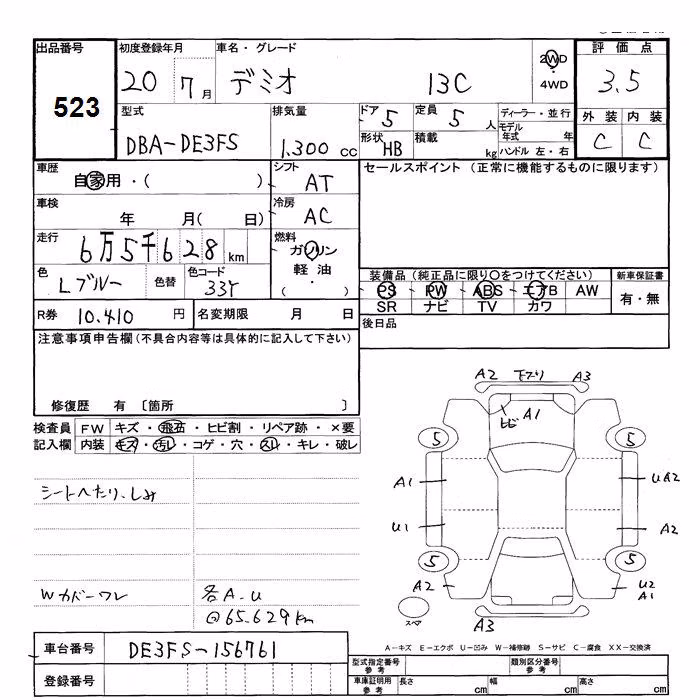 出品番号
523
初度登録年月
20 7月
車名・グレード
デミオ 13C
2WD
4WD
評価点
3.5
外装 内装
C C
型式
DBA-DE3FS
排気量
1.300 cc
ドア 5
定員 5 人
形状 HB
積載 kg
ディーラー・並行
モデル年式 年
ハンドル 左・右
車歴
自家用・( )
シフト
AT
セールスポイント (正常に機能するものに限ります)
車検
年 月( 日)
冷房
AC
走行
6万5千628km
燃料
ガソリン
軽油
( ・ )
色
Lブルー
色替
色コード
33Y
装備品 (純正品に限り○をつけてください)
PS PW ABS エアB AW
SR ナビ TV カワ
新車保証書
有・無
R券 10.410 円
名変期限 月 日
後日品
注意事項申告欄(不具合内容等は具体的に記入して下さい)
修復歴 有 〔箇所 〕
検査員記入欄
FW キズ・飛石・ヒビ割・リペア跡・×要
内装 キズ・汚れ・コゲ・穴・スレ・キレ・破レ
シートへたり、しみ
Wカバーワレ
各A.U
@65.629km
A2 下スリ A3
ヒビ A1
5 5
A1 UA2
U1 A2
5 5
A2 U2
A1
スペア
A3
A-キズ E-エクボ U-凹み W-補修跡 S-サビ C-腐食 XX-交換済
車台番号
DE3FS-156761
登録番号
型式指定番号 参考
類別区分番号 参考
車庫証明用 参考
長さ cm
幅 cm
高さ cm